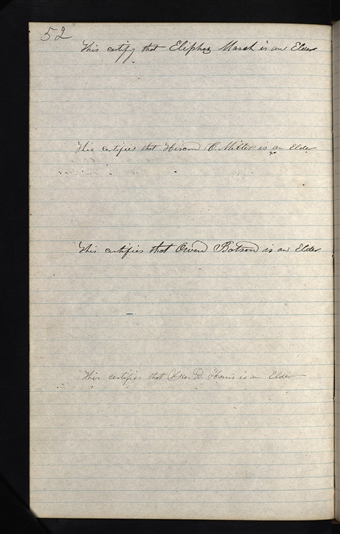 52
This certify that Eliphaz Marsh is an Elder
This certifies that Hiram O. Miller is an Elder
This certifies that Owen Botsford is an Elder
This certifies that D. Harris is an Elder